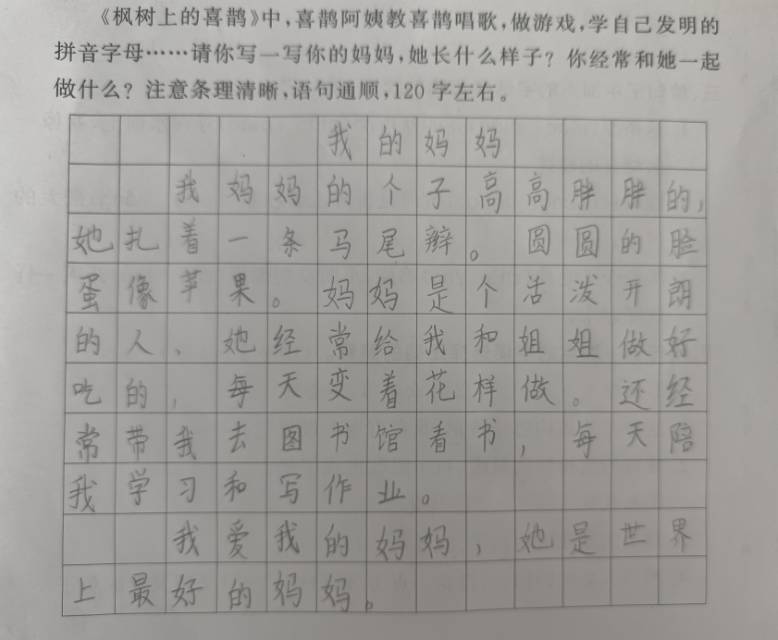 《枫树上的喜鹊》中,喜鹊阿姨教喜鹊唱歌,做游戏,学自己发明的
拼音字母……请你写一写你的妈妈,她长什么样子?你经常和她一起
做什么?注意条理清晰,语句通顺,120字左右。
我的妈妈
我妈妈的个子高高胖胖的,
她扎着一条马尾辫。圆圆的脸
蛋像苹果。妈妈是个活泼开朗
的人、她经常给我和姐姐做好
吃的,每天变着花样做。还经
常带我去图书馆看书,每天陪
我学习和写作业。
我爱我的妈妈,她是世界
上最好的妈妈。